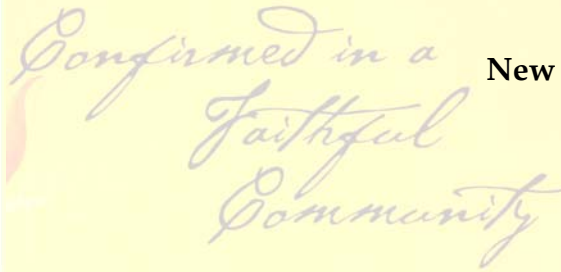 Confirmed in a
New
Faithful
Community